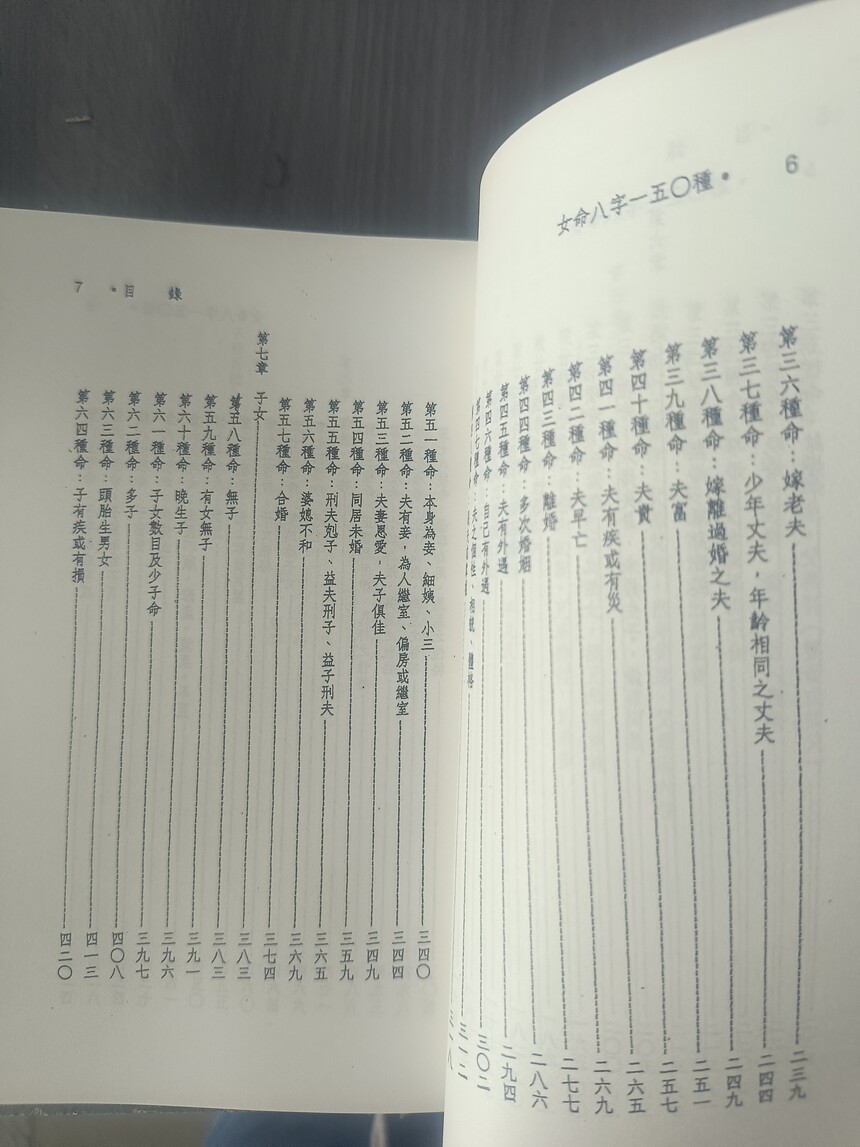 女命八字一五〇種 • 6
第三六種命：嫁老夫 二三九
第三七種命：少年丈夫，年齡相同之丈夫 二四四
第三八種命：嫁離過婚之夫 二四九
第三九種命：夫富 二五一
第四十種命：夫貴 二五七
第四一種命：夫有疾或有災 二六五
第四二種命：夫早亡 二六九
第四三種命：離婚 二七七
第四四種命：多次婚姻 二八六
第四五種命：夫有外遇 二九四
第四六種命：自己有外遇 三〇二
第四七種命：夫之個性、相貌、體格 三一二
7 • 目 錄
第五一種命：本身為妾、細姨、小三 三四〇
第五二種命：夫有妾，為人繼室、偏房或繼室 三四四
第五三種命：夫妻恩愛，夫子俱佳 三四九
第五四種命：同居未婚 三五九
第五五種命：刑夫剋子、益夫刑子、益子刑夫 三六五
第五六種命：婆媳不和 三六九
第五七種命：合婚 三七四
第七章 子女 三八三
第五八種命：無子 三八三
第五九種命：有女無子 三九一
第六十種命：晚生子 三九六
第六一種命：子女數目及少子命 三九七
第六二種命：多子 四〇八
第六三種命：頭胎生男女 四一三
第六四種命：子有疾或有損 四二〇